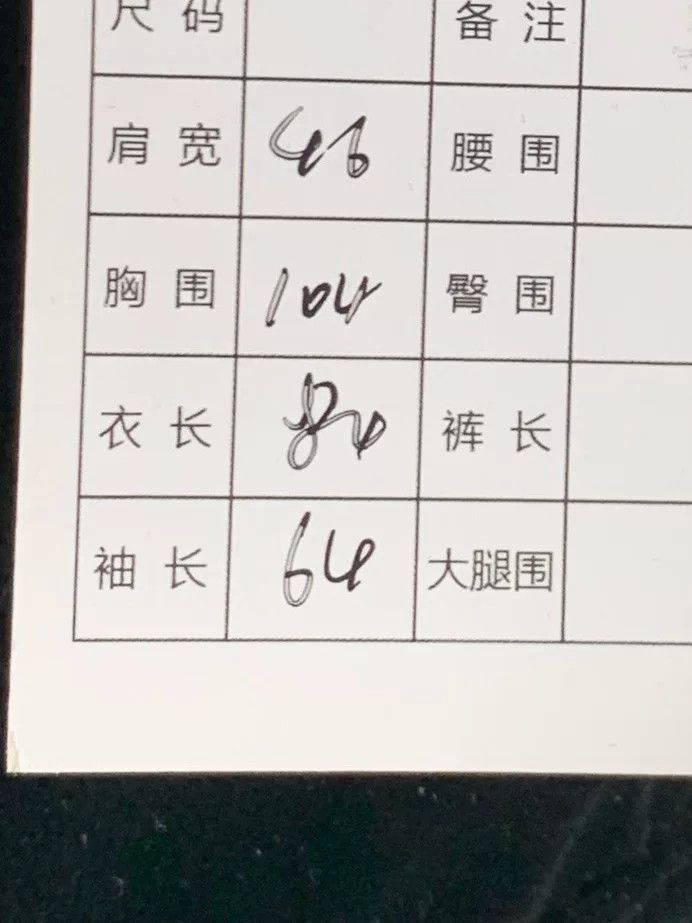 尺码 备注
肩宽 46 腰围
胸围 104 臀围
衣长 裤长
袖长 64 大腿围